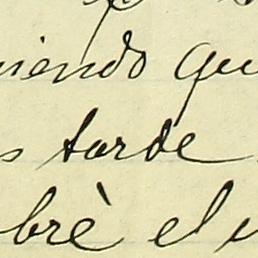 iendo qu
s tarde
brè el